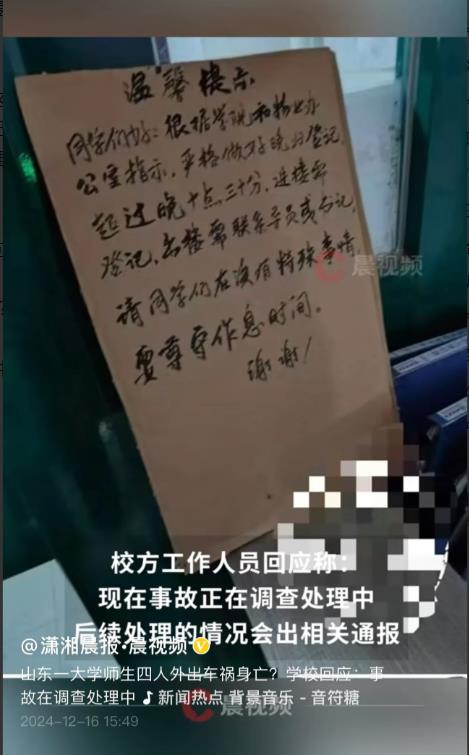 温馨提示
同学们好：根据学院和物业办
公室指示，严格做好晚归登记，
超过晚十点三十分，进楼需
登记，出楼需联系导员或书记，
请同学们在没有特殊事情，
要尊守作息时间。
谢谢！
晨视频
校方工作人员回应称：
现在事故正在调查处理中
后续处理的情况会出相关通报
@潇湘晨报·晨视频
山东一大学师生四人外出车祸身亡？学校回应：事
故在调查处理中 新闻热点 背景音乐 - 音符糖
2024-12-16 15:49
晨视频